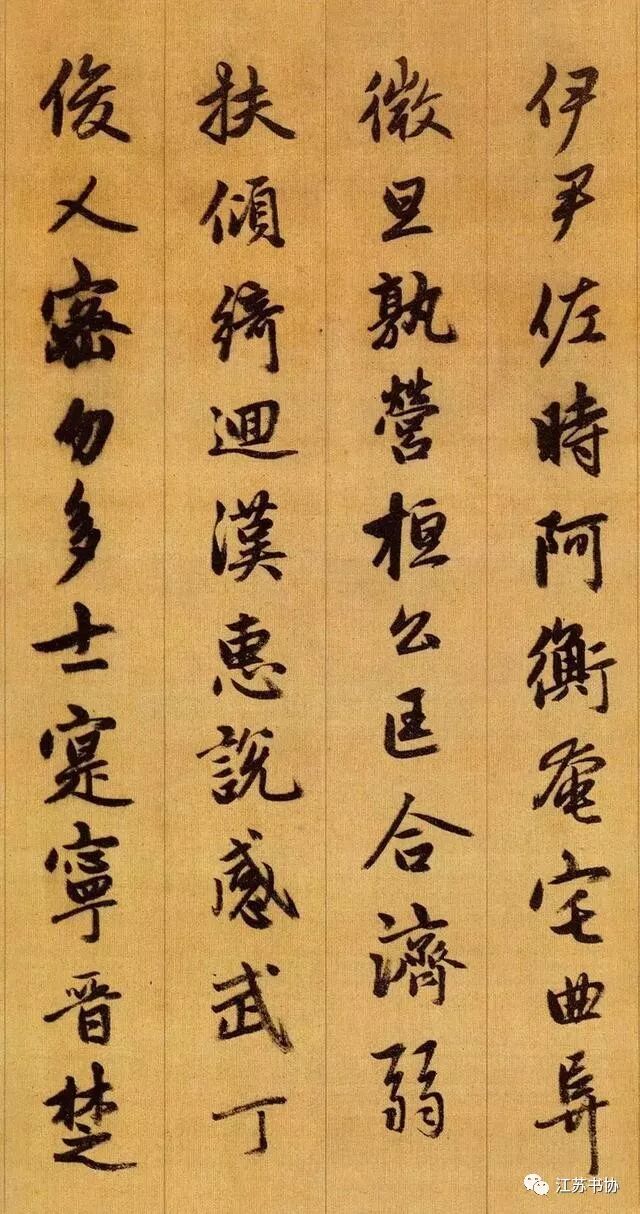 伊尹佐時阿衡奄宅曲阜
微旦孰營桓公匡合濟弱
扶傾綺迴漢惠說感武丁
俊乂密勿多士寔寧晋楚
江苏书协